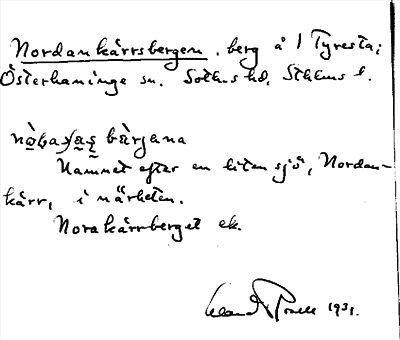 Nordankärrsbergen, berg å / Tyresta;
Österhaninge sn. Sotlus hd, Sthlms l.
bärjana
Namnet efter en liten sjö, Nordan-
kärr, i närheten.
Norakärrberget ek.
1931.